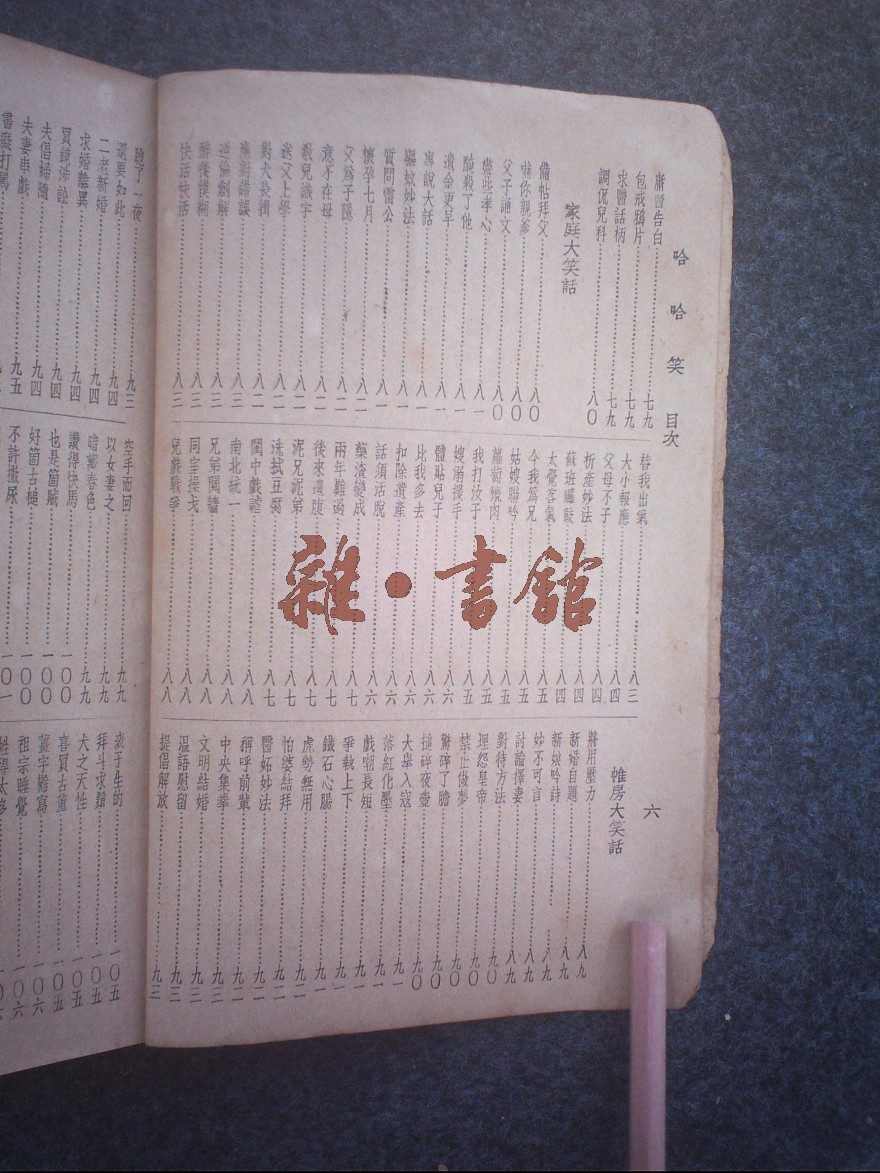 哈哈笑 目次
六
庸醫告白 七九
包戒鴉片 七九
求醫話柄 七九
調侃兒科 八〇
家庭大笑話
備帖拜父 八〇
嚇你親爹 八〇
父子誦文 八〇
八一
八一
遺金更早 八一
專說大話 八一
驅蚊妙法 八一
質問雷公 八一
懷孕七月 八一
父為子隱 八二
意不在母 八二
教兒識字 八二
送父上學 八二
對犬長揖 八二
八三
逆倫創解 八三
醉後模糊 八三
快活快活 八三
替我出氣 八三
大小報應 八四
父母不子 八四
析產妙法 八四
蘇班鑼鼓 八四
太覺客氣 八五
今我為兄 八五
姑嫂聯吟 八五
蘿蔔燒肉 八五
我打汝子 八五
嫂溺援手 八六
體貼兒子 八六
比我多去 八六
扣除遺產 八六
話須活脫 八六
藥渣變成 八七
兩年難過 八七
後來遺腹 八七
泥兄泥弟 八七
洗拭豆腐 八七
閨中戲謔 八八
南北統一 八八
兄弟鬩牆 八八
同室操戈 八八
兒戲戰爭 八八
帷房大笑話
將用壓力 八九
新婚自題 八九
新娘吟詩 八九
妙不可言 八九
討論擇妻 八九
對待方法 九〇
埋怨皇帝 九〇
禁止做夢 九〇
驚碎了膽 九〇
搥碎夜壺 九〇
大舉入寇 九一
落紅化墨 九一
戲嘲長短 九一
爭執上下 九一
鐵石心腸 九一
虎勢無用 九二
怕婆結拜 九二
醫妬妙法 九二
稱呼前輩 九二
中央集拳 九二
文明結婚 九三
溫語慰留 九三
提倡解放 九三
跪了一夜 九三
還要如此 九四
二老新婚 九四
求婚離異 九四
買鏡涉訟 九四
夫倡婦隨 九四
夫妻串戲 九五
書癡打罵
空手而回 九九
以女妻之 九九
暗藏春色 九九
讚得快馬 一〇〇
也是箇賊 一〇〇
好箇古槌 一〇〇
不許撒尿 一〇一
妾子生的 一〇五
拜斗求籤 一〇五
犬之天性 一〇五
喜買古董 一〇五
薑字難寫 一〇六
祖宗睡覺 一〇六
雜·書館